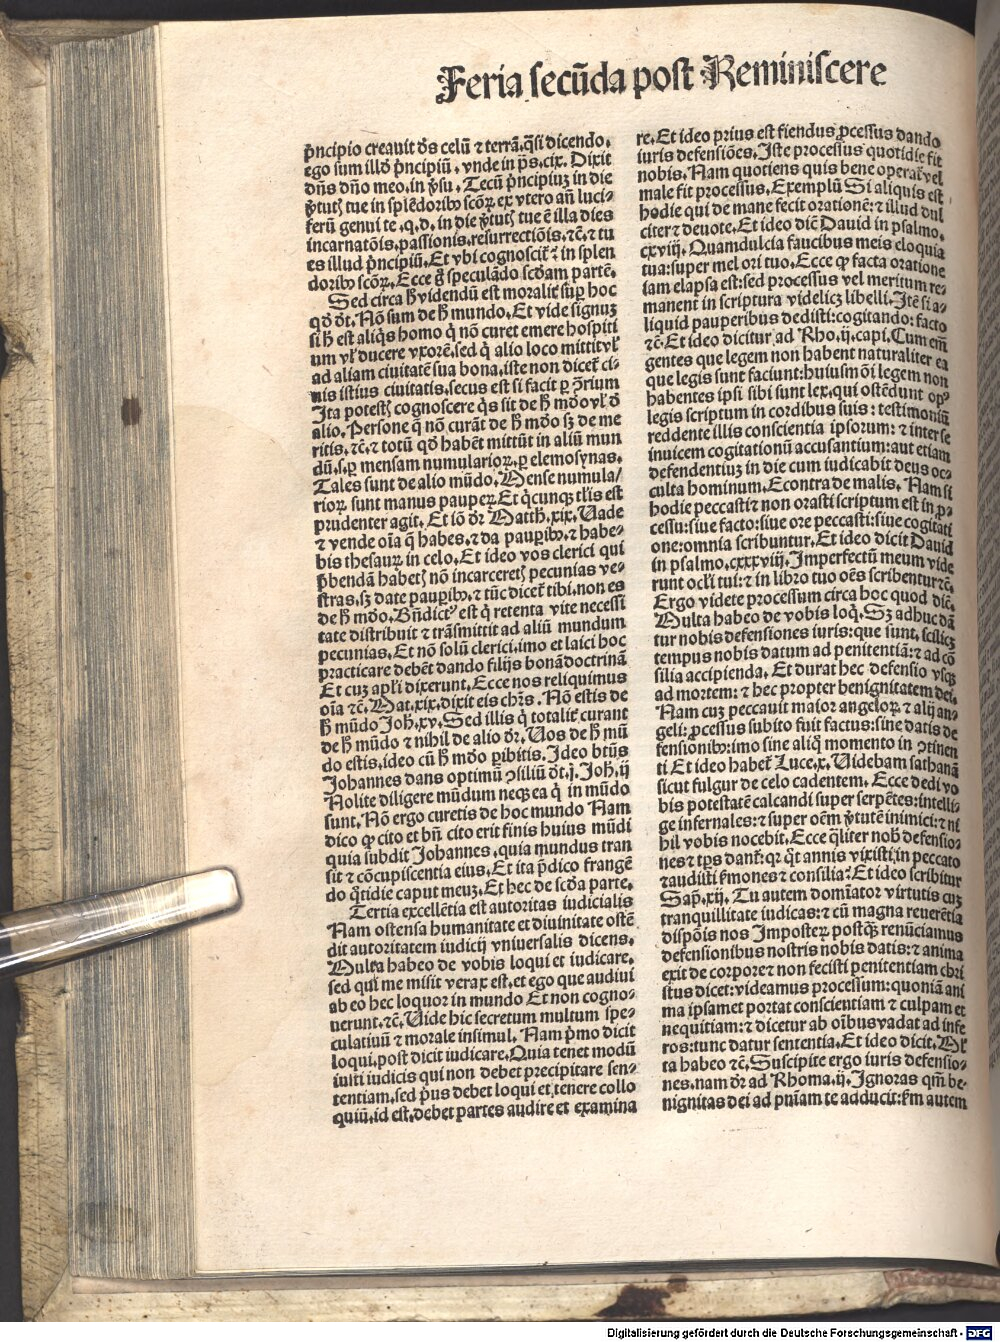 Feria secūda post Reminiscere
p̄ncipio creauit ds̄ celū ⁊ terrā.q̄si dicendo.
ego sum illd̄ p̄ncipiū. vnde in ps̄.cix. Dixit
dn̄s dn̄o meo.in p̄su. Tecū p̄ncipiuȝ in die
v̄tutꝭ tue in splēdoribꝰ scōꝝ ex vtero an̄ luci-
ferū genui te.q.d.in die v̄tutꝭ tue ē illa dies
incarnatōis.passionis.resurrectiōis.⁊c̄.⁊ tu
es illud p̄ncipiū. Et vbi cognoscit᷑ ⁊ in splen
doribꝰ scōꝝ. Ecce g̊ speculādo scd̄am partē.
Sed circa h̄ videndū est moralit᷑ sup̄ hoc
qd̄ dt̄. Nō sum de h̄ mundo. Et vide signuȝ
si h̄ est aliq̄s homo q̄ nō curet emere hospiti
um vl̓ ducere vxorē.sed q̄ alio loco mittit vl̓
ad aliam ciuitatē sua bona.iste non dicet᷑ ci-
uis istius ciuitatis.secus est si facit ꝑ ꝯ̄rium
Ita potestꝭ cognoscere q̄s sit de h̄ mōo vl̓ d̄
alio. Persone q̄ nō curāt de h̄ mōo sȝ de me
ritis.⁊c̄.⁊ totū qd̄ habēt mittūt in aliū mun
dū.s.ꝑ mensam numularioꝝ.ꝑ elemosynas.
Tales sunt de alio mūdo. Mense numula/
rioꝝ sunt manus pauperꝝ. Et q̄cunqꝫ tl̓is est
prudenter agit. Et iō dr̄ Matth̄.xix. Uade
⁊ vende oīa q̄ habes.⁊ da pauꝑibꝰ.⁊ habe-
bis thesauꝝ in celo. Et ideo vos clerici qui
p̄bendā habetꝭ nō incarceretꝭ pecunias ve-
stras.sȝ date pauꝑibꝰ.⁊ tūc dicet᷑ tibi.non es
de h̄ mōo. Bn̄dictꝰ est q̄ retenta vite necessi
tate distribuit ⁊ trāsmittit ad aliū mundum
pecunias. Et nō solū clerici.imo et laici hoc
practicare debēt dando filijs bonā doctrinā
Et cuȝ apl̓i dixerunt. Ecce nos reliquimus
oīa ⁊c̄. Mat.xix.dixit eis chr̄s. Nō estis de
h̄ mūdo Joh̄.xv. Sed illis q̄ totalit᷑ curant
de h̄ mūdo ⁊ nihil de alio dr̄. Uos de h̄ mū
do estis.ideo cū h̄ mōo ꝑibitis. Ideo btūs
Johannes dans optimū ꝯsiliū dt̄.j. Joh̄.ij
Nolite diligere mūdum neqꝫ ea q̄ in mūdo
sunt. Nō ergo curetis de hoc mundo Nam
dico ꝙ cito et bn̄ cito erit finis huius mūdi
quia subdit Johannes.quia mundus tran
sit ⁊ cōcupiscentia eius. Et ita p̄dico frangē
do q̄tidie caput meuȝ. Et hec de scd̄a parte.
Tertia excellētia est autoritas iudicialis
Nam ostensa humanitate et diuinitate ostē
dit autoritatem iudicij vniuersalis dicens.
Multa habeo de vobis loqui et iudicare.
sed qui me misit verax est.et ego que audiui
ab eo hec loquor in mundo Et non cogno-
uerunt.⁊c̄. Uide hic secretum multum spe-
culatiuū ⁊ morale insimul. Nam p̄mo dicit
loqui.post dicit iudicare. Quia tenet modū
iusti iudicis qui non debet precipitare sen-
tentiam.sed p̄us debet loqui et tenere collo
quiū.id est.debet partes audire et examina
re. Et ideo prius est fiendus ꝓcessus dando
iuris defensiōes. Iste processus quotidie fit
nobis. Nam quotiens quis bene operat᷑ vel
male fit processus. Exemplū Si aliquis est
hodie qui de mane fecit orationē:⁊ illud dul
citer ⁊ deuote. Et ideo dic̄ Dauid in psalmo.
cxviij. Quam dulcia faucibus meis eloquia
tua:super mel ori tuo. Ecce ꝙ facta oratione
iam elapsa est:sed processus vel meritum re-
manent in scriptura videlicȝ libelli. Itē si a-
liquid pauperibus dedisti:cogitando: facto
⁊c̄. Et ideo dicitur ad Rho.ij.capi. Cum em̄
gentes que legem non habent naturaliter ea
que legis sunt faciunt:huiusmōi legem non
habentes ipsi sibi sunt lex.qui ostēdunt opꝰ
legis scriptum in cordibus suis: testimoniū
reddente illis conscientia ipsorum: ⁊ inter se
inuicem cogitationū accusantium:aut etiam
defendentiuȝ in die cum iudicabit deus oc-
culta hominum. Econtra de malis. Nam si
hodie peccasti ⁊ non orasti scriptum est in ꝓ-
cessu:siue facto:siue ore peccasti:siue cogitati
one:omnia scribuntur. Et ideo dicit Dauid
in psalmo.cxxxviij. Imperfectū meum vide
runt ocl̓i tui:⁊ in libro tuo oēs scribentur ⁊c̄.
Ergo videte processum circa hoc quod dic̄.
Multa habeo de vobis loq̄. Sȝ adhuc dā
tur nobis defensiones iuris:que sunt.scilicȝ
tempus nobis datum ad penitentiā:⁊ ad cō
silia accipienda. Et durat hec defensio vsqꝫ
ad mortem:⁊ hec propter benignitatem dei.
Nam cuȝ peccauit maior angeloꝝ ⁊ alij an-
geli:ꝓcessus subito fuit factus:sine datis de
fensionibꝰ:imo sine aliq̄ momento in ꝯtinen
ti Et ideo habet᷑ Luce.x. Uidebam sathanā
sicut fulgur de celo cadentem. Ecce dedi vo
bis potestatē calcandi super serpētes:intelli-
ge infernales:⁊ super oēm v̄tutē inimici:⁊ ni
hil vobis nocebit. Ecce q̄liter nob̄ defensio-
nes ⁊ tp̄s dant᷑:qr q̄t annis vixisti in peccato
⁊ audisti ẜmones ⁊ consilia? Et ideo scribitur
Sap̄.xij. Tu autem domīator virtutis cuȝ
tranquillitate iudicas:⁊ cū magna reuerētia
dispōis nos Imposteꝝ postqꝫ renūciamus
defensionibus nostris nobis datis:⁊ anima
exit de corpore ⁊ non fecisti penitentiam chri
stus dicet:videamus processum:quoniā ani
ma ipsamet portat conscientiam ⁊ culpam et
nequitiam:⁊ dicetur ab oībus vadat ad infe
ros:tunc datur sententia. Et ideo dicit. Ml̓
ta habeo ⁊c̄. Suscipite ergo iuris defensio-
nes.nam dr̄ ad Rhoma.ij. Ignoras qm̄ be-
nignitas dei ad pn̄iam te adducit:ẜm autem
Digitalisierung gefördert durch die Deutsche Forschungsgemeinschaft - DFG